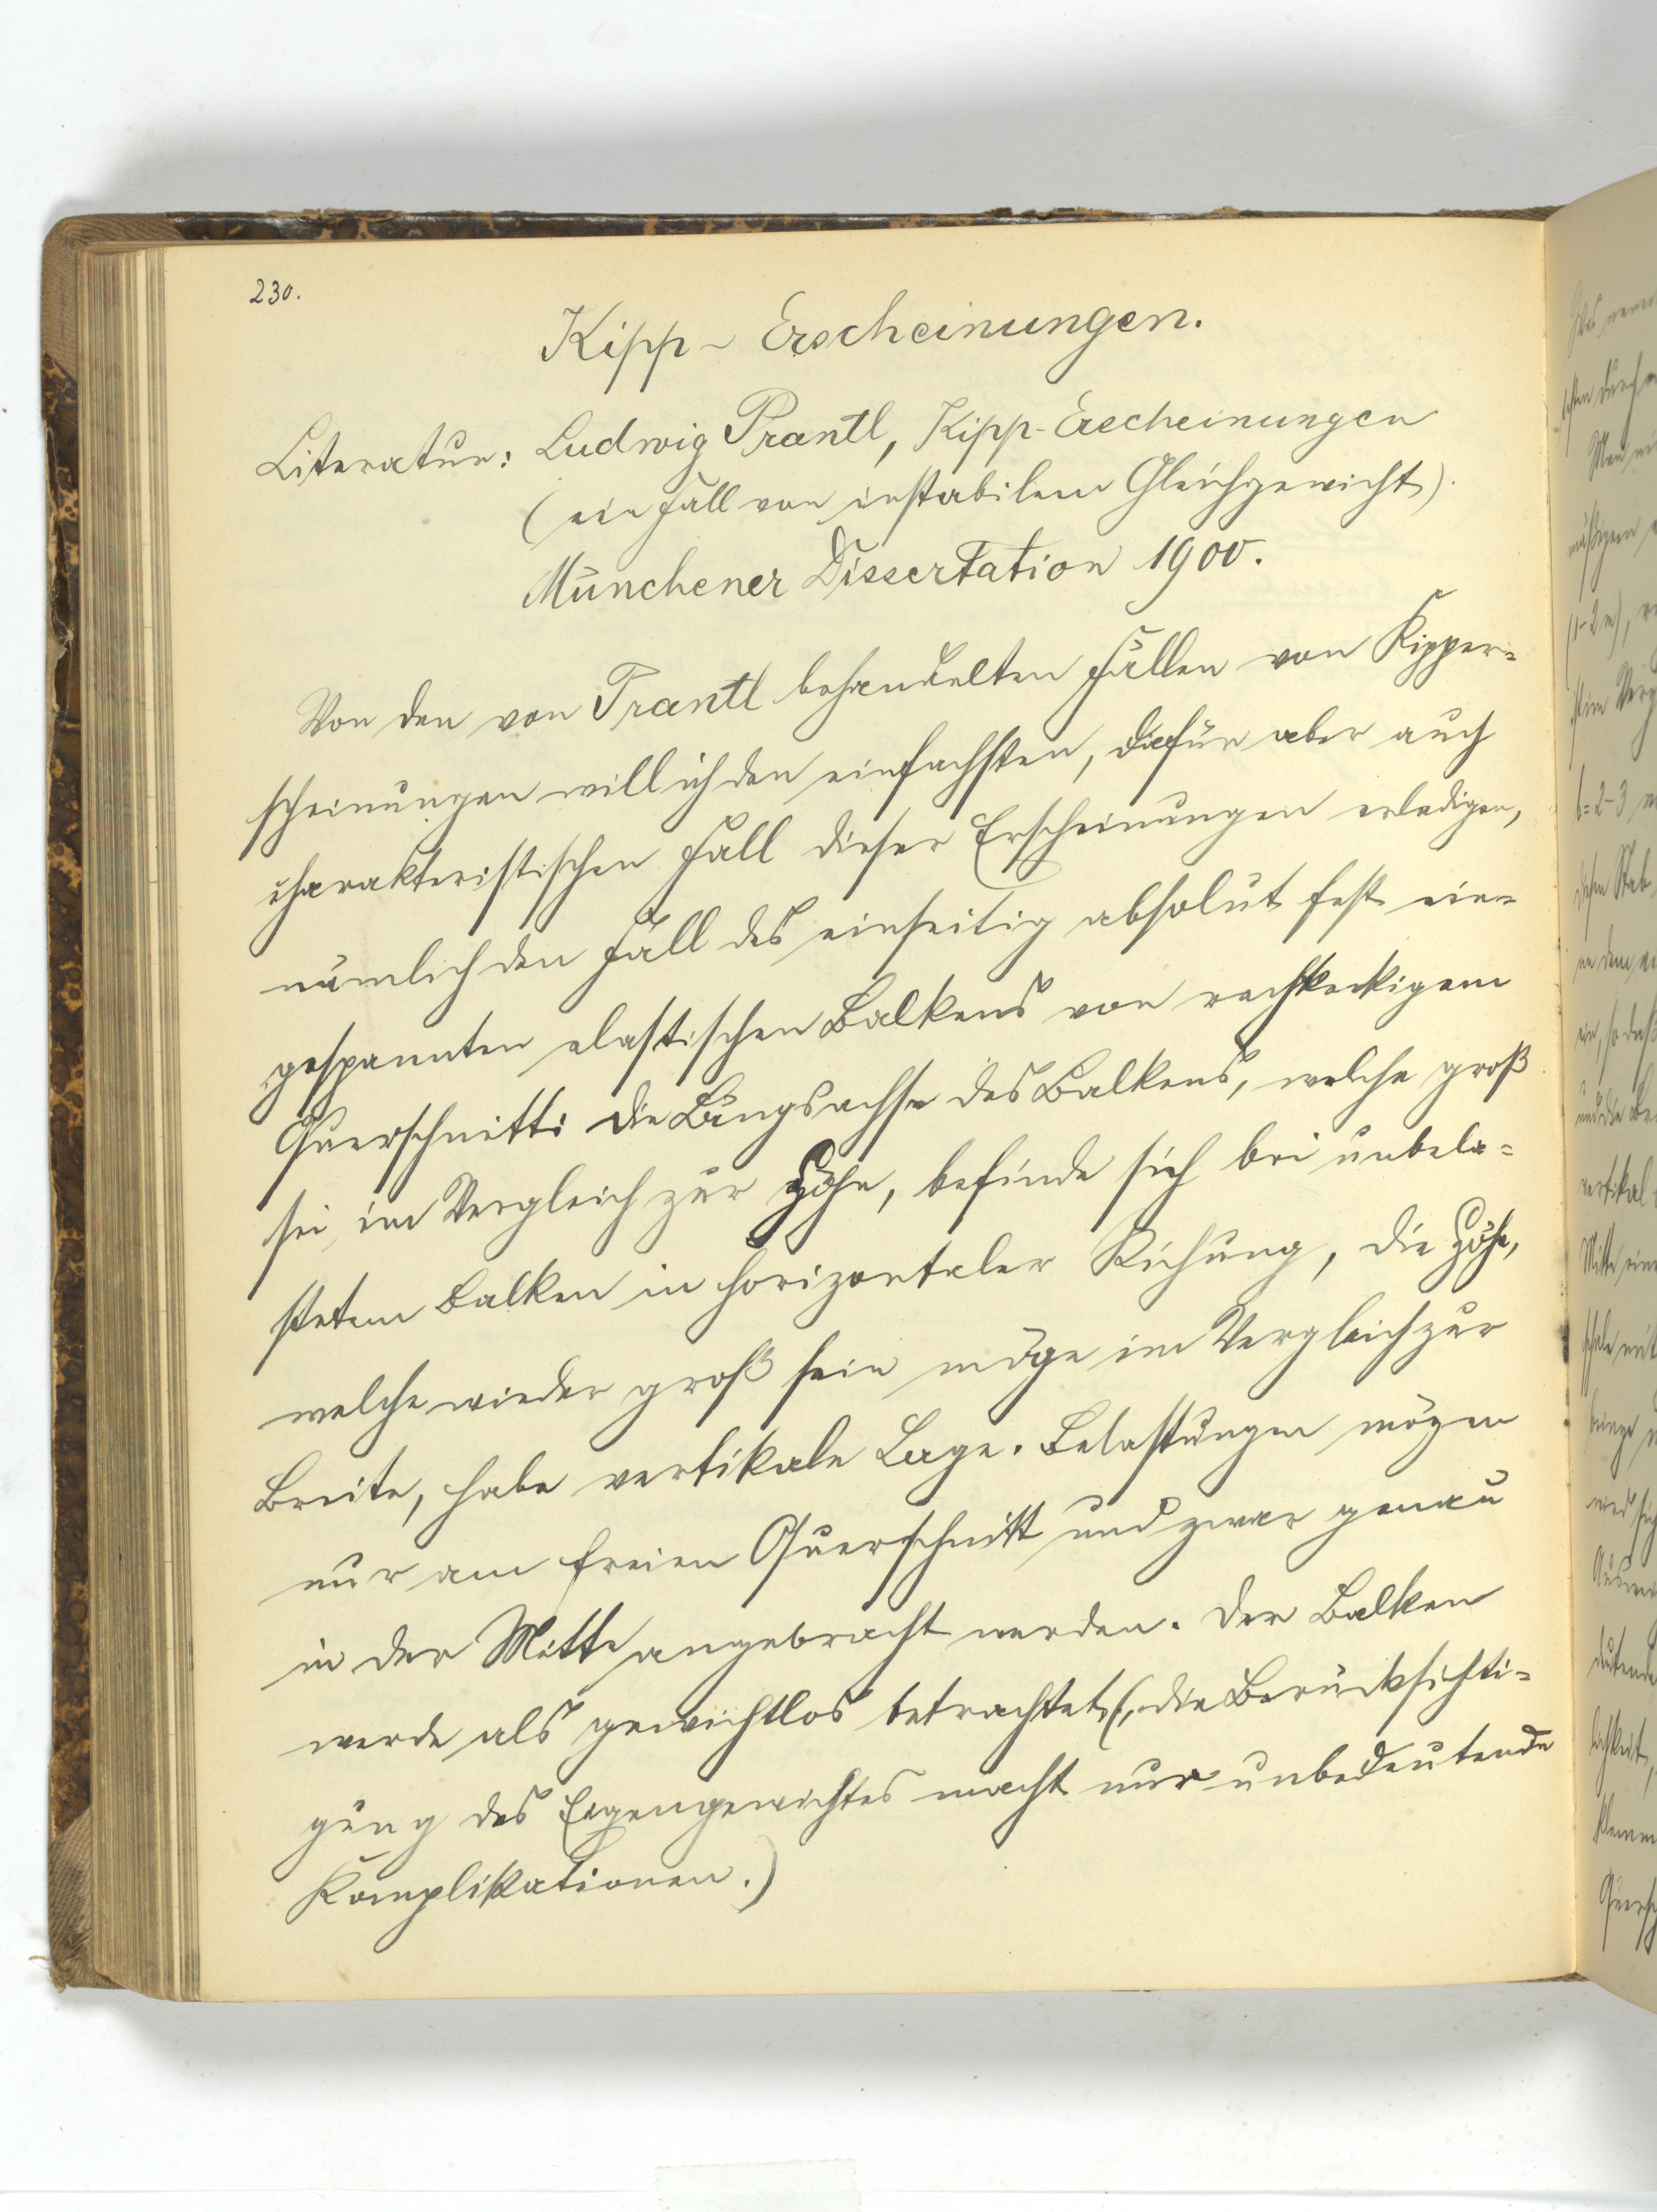 230.
Kipp- Erscheinungen.
Literatur: Ludwig Prantl, Kipp-Erscheinungen
(ein Fall von instabilem Gleichgewicht).
Münchener Dissertation 1900.
Von den von Prantl behandelten Fällen von Kipper=
scheinungen will ich den einfachsten, dafür aber auch
charakteristischen Fall dieser Erscheinungen erledigen,
nämlich den Fall des einseitig absolut fest ein=
gespannten elastischen Balkens von rechteckigem
Querschnitt: die Längsachse des Balkens, welche groß
sei im Vergleich zur Höhe, befinde sich bei unbela=
stetem Balken in horizontaler Richung, die Höhe,
welche wieder groß sein möge im Vergleich zur
Breite, habe vertikale Lage. Belastungen mögen
nur am freien Querschnitt und zwar genau
in der Mitte angebracht werden. Der Balken
werde als gewichtlos betrachtet (, die Berücksichti=
gung des Eigengewichtes macht nur unbedeutende
Komplikationen.)